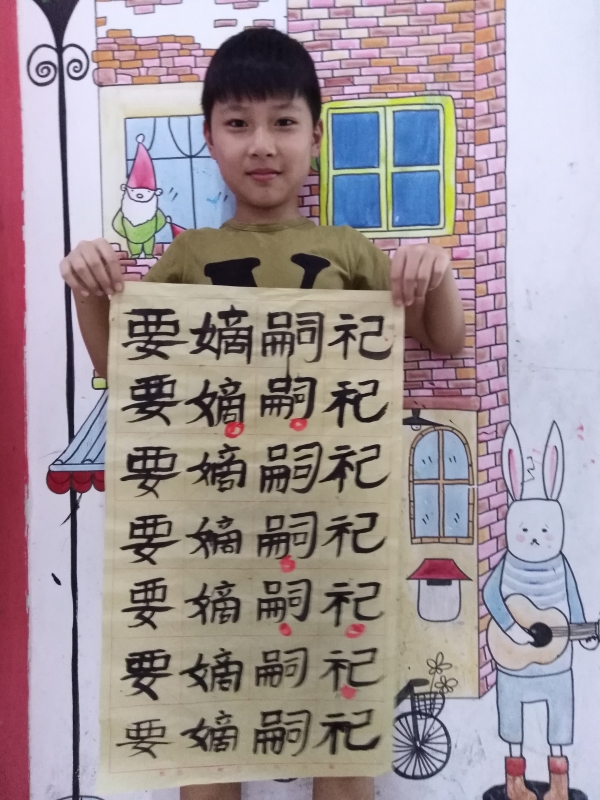 要嫡嗣祀
要嫡嗣祀
要嫡嗣祀
要嫡嗣祀
要嫡嗣祀
要嫡嗣祀
要嫡嗣祀